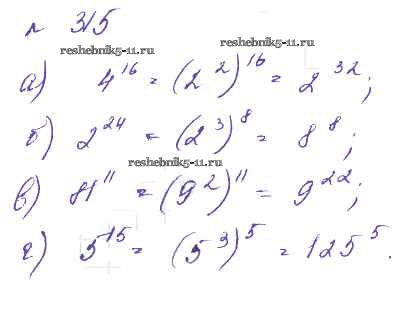 № 315
reshebnik5-11.ru
reshebnik5-11.ru
а) 4^16 = (2^2)^16 = 2^32;
б) 2^24 = (2^3)^8 = 8^8;
reshebnik5-11.ru
в) 81^11 = (9^2)^11 = 9^22;
г) 5^15 = (5^3)^5 = 125^5.